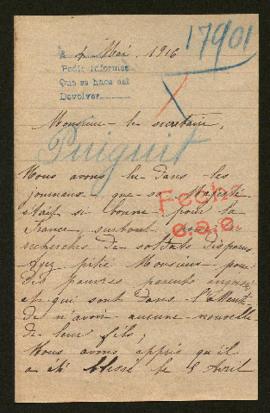 17901
Mai 1916
Pedir informes
Que se hace así
Devolver
Monsieur le secretaire,
Puiguit
Nous avons lu dans les
journaux que sa Majesté
était si bonne pour la
France, surtout
Fecho
recherches de soldats disparus
pitié Monsieur pour
des pauvres parents
et qui sont dans
de n'avoir aucune nouvelle
de leur fils,
Nous avons appris qu'il
a été blessé le Avril